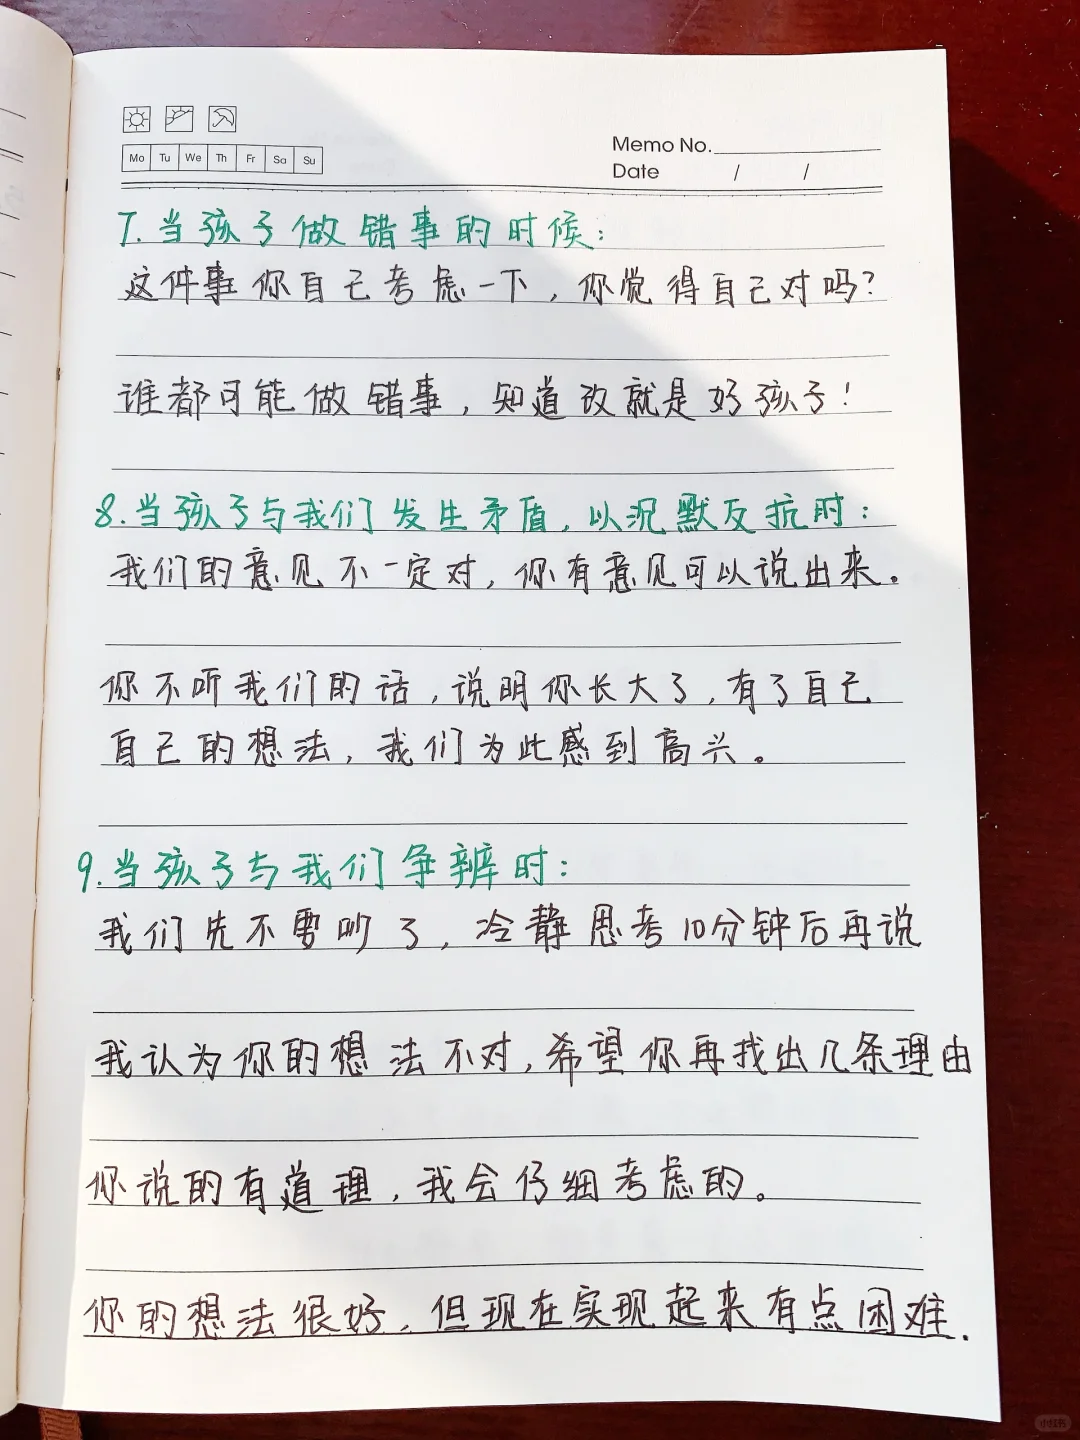 Mo Tu We Th Fr Sa Su
Memo No.
Date / /
7.当孩子做错事的时候:
这件事你自己考虑一下,你觉得自己对吗?
谁都可能做错事,知道改就是好孩子!
8.当孩子与我们发生矛盾,以沉默反抗时:
我们的意见不一定对,你有意见可以说出来。
你不听我们的话,说明你长大了,有了自己
自己的想法,我们为此感到高兴。
9.当孩子与我们争辨时:
我们先不要吵了,冷静思考10分钟后再说
我认为你的想法不对,希望你再找出几条理由
你说的有道理,我会仔细考虑的。
你的想法很好,但现在实现起来有点困难.
小红书